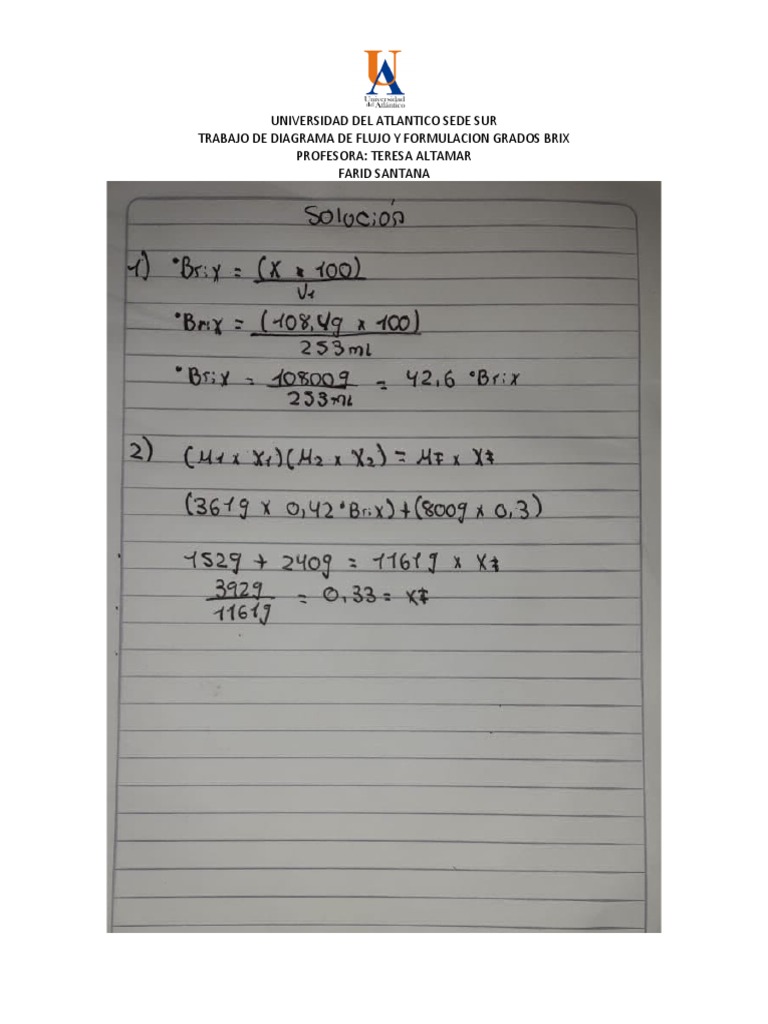 UA
Universidad
del Atlántico
UNIVERSIDAD DEL ATLANTICO SEDE SUR
TRABAJO DE DIAGRAMA DE FLUJO Y FORMULACION GRADOS BRIX
PROFESORA: TERESA ALTAMAR
FARID SANTANA
Solución
1) °Brix = (X * 100)
V1
°Brix = (108,4g x 100)
253ml
°Brix = 10800g = 42,6 °Brix
253ml
2) (M1 x X1)(M2 x X2) = MF x XF
(361g x 0,42°Brix)+(800g x 0,3)
152g + 240g = 1161g x XF
392g = 0,33 = XF
1161g